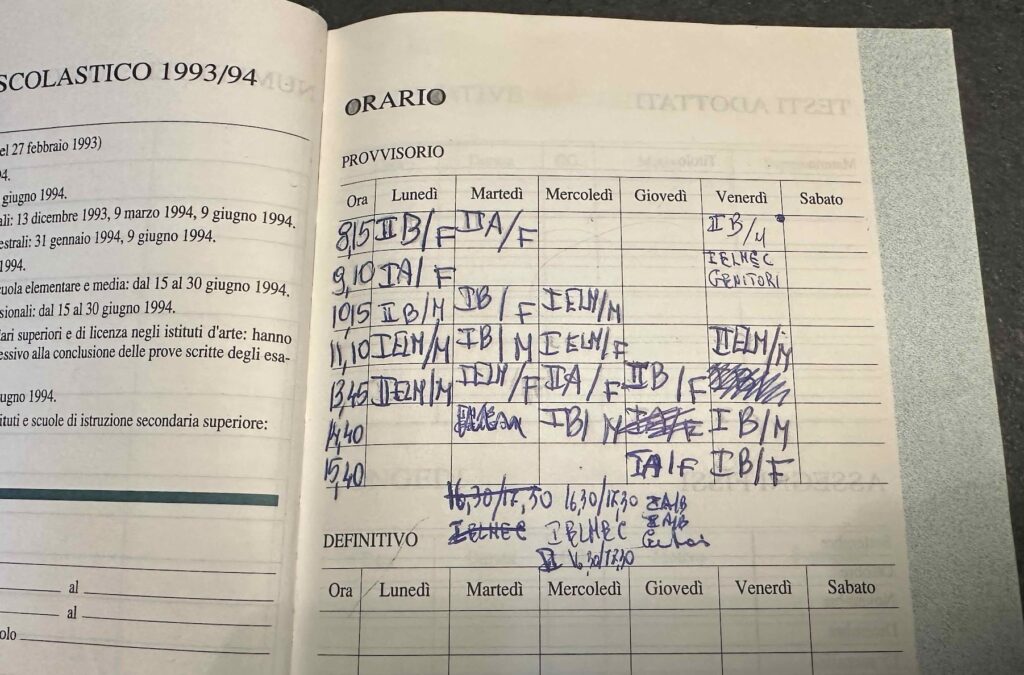 SCOLASTICO 1993/94
el 27 febbraio 1993)
94.
giugno 1994.
ali: 13 dicembre 1993, 9 marzo 1994, 9 giugno 1994.
estrali: 31 gennaio 1994, 9 giugno 1994.
1994.
uola elementare e media: dal 15 al 30 giugno 1994.
sionali: dal 15 al 30 giugno 1994.
ari superiori e di licenza negli istituti d'arte: hanno
essivo alla conclusione delle prove scritte degli esa-
ugno 1994.
tituti e scuole di istruzione secondaria superiore:
al
al
olo
ORARIO
PROVVISORIO
Ora Lunedì Martedì Mercoledì Giovedì Venerdì Sabato
8,15 IIB/F IIA/F IB/M
9,10 IA/F IELMEC GENITORI
10,15 IIB/M IB/F IELM/M
11,10 IELM/M IB/M IELM/F IIELM/M
13,45 IIELM/M IELM/F IIA/F IIB/F
14,40 IB/M IB/M
15,40 IA/F IB/F
16,30/17,30 16,30/17,30 IA/B
IELMEC IELMEC IIA/B
DEFINITIVO
16,30/17,30
Ora Lunedì Martedì Mercoledì Giovedì Venerdì Sabato